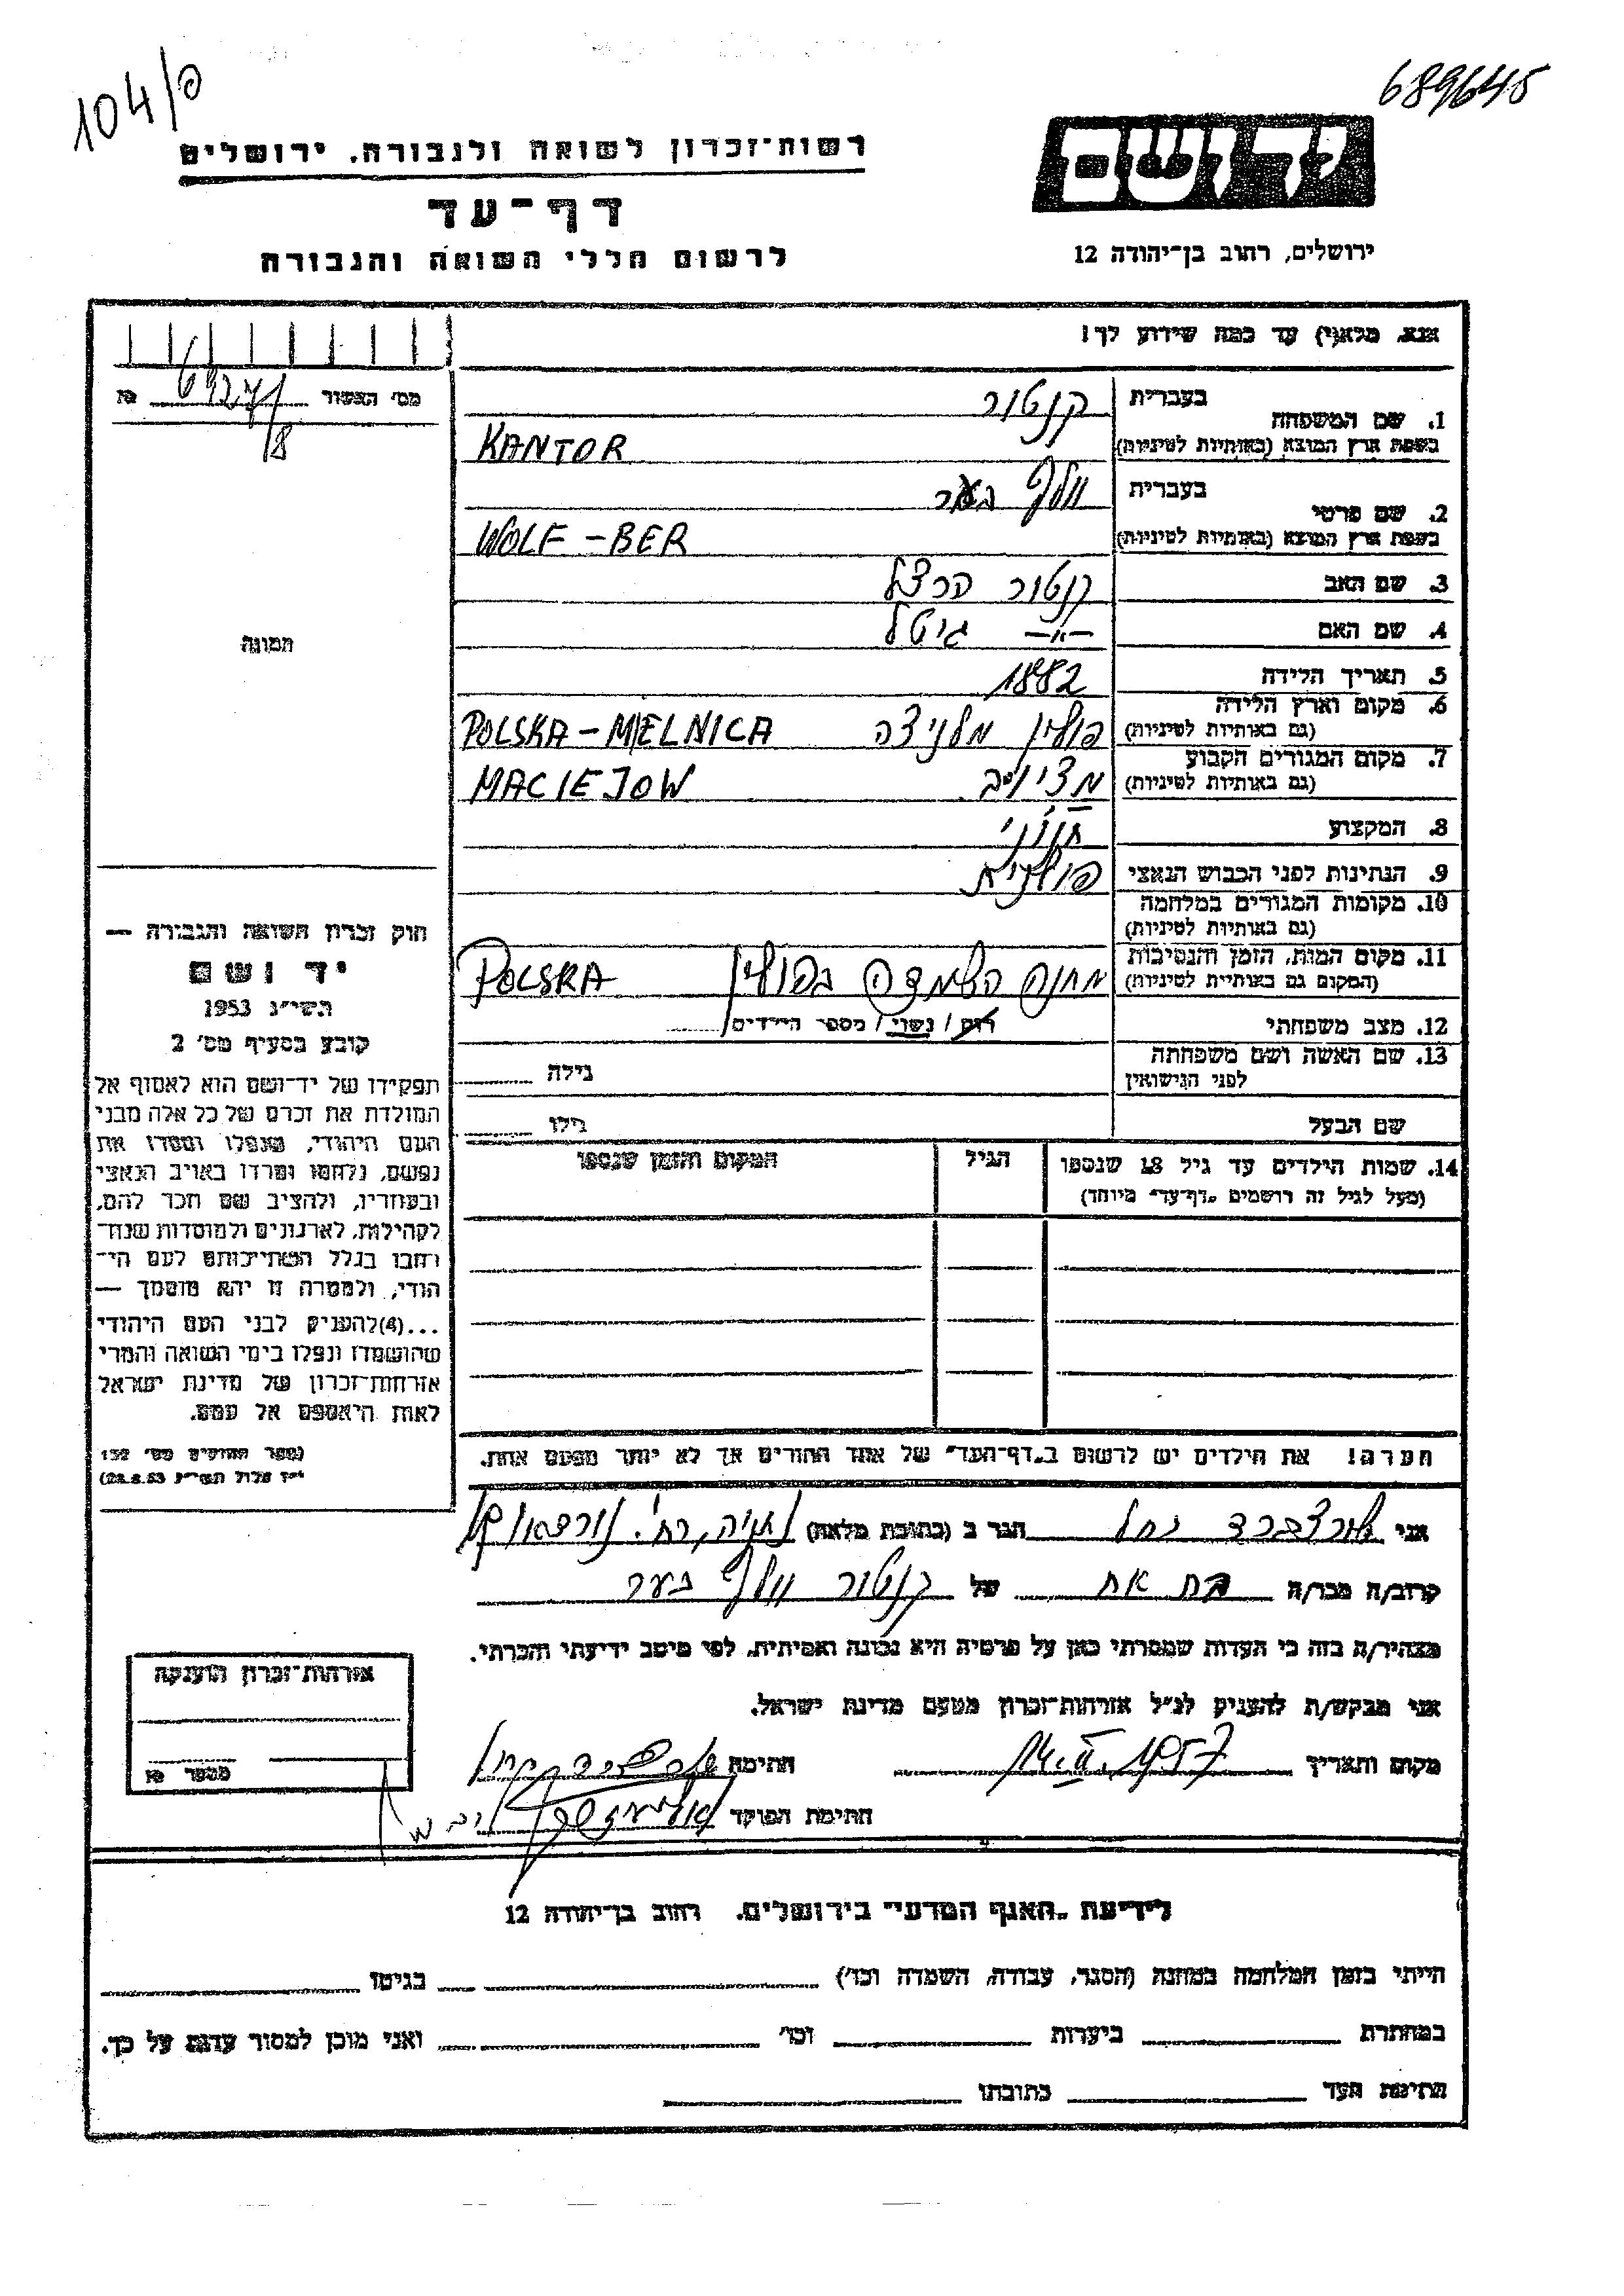 104/פ
689645
רשות־זכרון לשואה ולגבורה. ירושלים
יד ושם
דף־עד
לרשום חללי השואה והגבורה
ירושלים, רחוב בן־יהודה 12
אנא, מלא(י) עד כמה שידוע לך!
מס׳ האשור
8
1. שם המשפחה
בעברית קנטור
בשפת ארץ המוצא (באותיות לטיניות) KANTOR
2. שם פרטי
בעברית וולף בער
בשפת ארץ המוצא (באותיות לטיניות) WOLF-BER
3. שם האב קנטור הרצל
4. שם האם —״— גיטל
5. תאריך הלידה 1882
6. מקום וארץ הלידה (גם באותיות לטיניות) פולין מלניצה POLSKA-MIELNICA
7. מקום המגורים הקבוע (גם באותיות לטיניות) מציוב MACIEJOW
8. המקצוע חנוני
9. הנתינות לפני הכבוש הנאצי פולנית
10. מקומות המגורים במלחמה (גם באותיות לטיניות)
11. מקום המות, הזמן והנסיבות (המקום גם באותיית לטיניות) מחנה השמדה בפולין POLSKA
12. מצב משפחתי רווק / נשוי / מספר הילדים
13. שם האשה ושם משפחתה לפני הנישואין גילה
שם הבעל גילו
14. שמות הילדים עד גיל 18 שנספו
(מעל לגיל זה רושמים „דף־עד״ מיוחד)
הגיל
המקום והזמן שנספו
תמונה
חוק זכרון השואה והגבורה —
יד ושם
תשי״ג 1953
קובע בסעיף מס׳ 2
תפקידו של יד־ושם הוא לאסוף אל
המולדת את זכרם של כל אלה מבני
העם היהודי, שנפלו ומסרו את
נפשם, נלחמו ומרדו באויב הנאצי
ובעוזריו, ולהציב שם וזכר להם,
לקהילות, לארגונים ולמוסדות שנח־
רובו בגלל השתייכותם לעם הי־
הודי, ולמטרה זו יהא מוסמך —
...(4)להעניק לבני העם היהודי
שהושמדו ונפלו בימי השואה והמרי
אזרחות־זכרון של מדינת ישראל
לאות היאספם אל עמם.
(ספר החוקים מס׳ 132
י״ז אלול תשי״ג 28.8.53)
הערה! את הילדים יש לרשום ב„דף־העד״ של אחד ההורים אך לא יותר מפעם אחת.
אני רחל הגר ב (כתובת מלאה) נתניה, רח׳
קרוב/ה מכר/ה בת אח של קנטור וולף בער
מצהיר/ה בזה כי העדות שמסרתי כאן על פרטיה היא נכונה ואמיתית, לפי מיטב ידיעתי והכרתי.
אני מבקש/ת להעניק לנ״ל אזרחות־זכרון מטעם מדינת ישראל.
מקום ותאריך 14.II.1957 חתימה
חתימת הפוקד
אזרחות־זכרון הוענקה
מספר
לידיעת „האגף המדעי״ בירושלים. רחוב בן־יהודה 12
הייתי בזמן המלחמה במחנה (הסגר, עבודה, השמדה וכו׳) בגיטו
במחתרת ביערות וכו׳ ואני מוכן למסור עדות על כך.
חתימת העד כתובתו